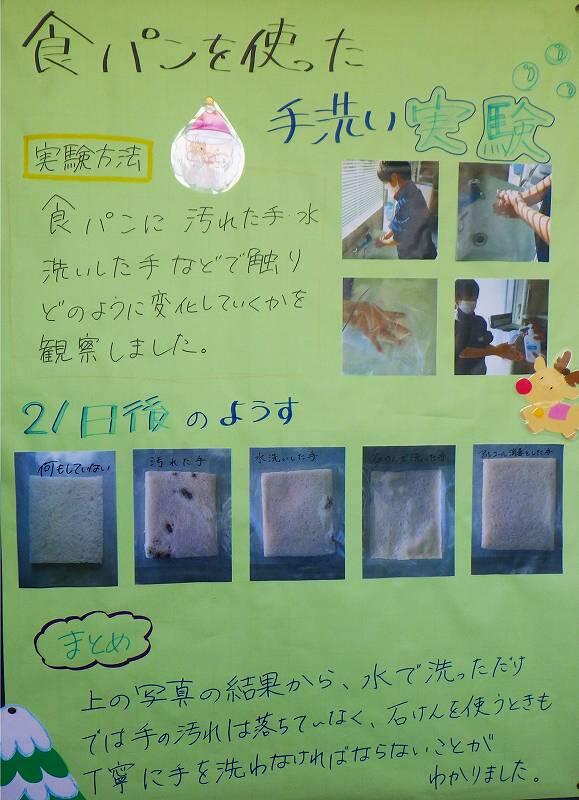 食パンを使った
手洗い実験
実験方法
食パンに汚れた手・水
洗いした手などで触り
どのように変化していくかを
観察しました。
21日後のようす
何もしていない
汚れた手
水洗いした手
石けんで洗った手
アルコール消毒をした手
まとめ
上の写真の結果から、水で洗っただけ
では手の汚れは落ちていなく、石けんを使うときも
丁寧に手を洗わなければならないことが
わかりました。